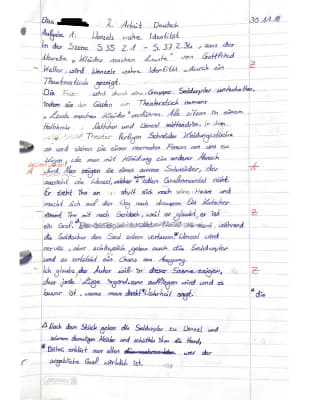 2. Arbeit Deutsch 30.11.18
Aufgabe 1: Wenzels wahre Identität
In der Szene S.35 Z.1 - S.37 Z.34, aus der
Novelle „Kleider machen Leute" von Gottfried
Keller, wird Wenzels wahre Identität durch ein
Theaterstück gezeigt.
Die wird durch eine Gruppe Seldwyler unterhalten,
indem sie den Gästen ein Theaterstück namens
„Leute machen Kleider" vorführen. Alle sitzen in einem
Halbkreis, Nettchen und Wenzel mittendrin, in dem
Theater fertigen Schneider Kleidungsstücke
an und ziehen sie einer normalen Person an um zu
zeigen, wie man mit Kleidung ein anderer Mensch
wird. Also zeigen sie einen armen Schneider, der
aussieht wie Wenzel, einen Grafenmantel näht.
Er zieht ihn an, stylt sich nach eine Heine und
macht sich auf den Weg nach draussen. Ein Kutscher
nimmt ihn mit nach Goldach, weil er glaubt, er ist
ein Graf. während
die Goldacher den Saal verlassen. Wenzel wird
nervös, aber schliesslich gehen auch die Seldwyler
und es entsteht ein Chaos am Ausgang.
Ich glaube, der Autor will in dieser Szene zeigen,
dass jede Lüge irgendwann auffliegen wird und es
besser ist, wenn man direkt Wahrheit sagt. * die
Δ Nach dem Stück gehen die Seldwyler zu Wenzel und
seinem damaligen Meister und schütteln ihm die Hand,
* Dätrig erklärt nun allen wer der
angebliche Graf wirklich ist.